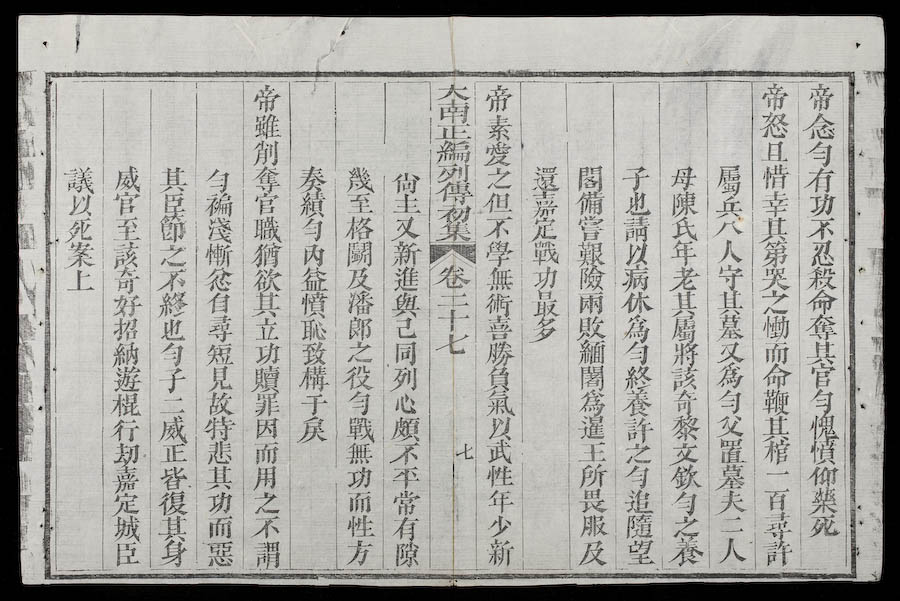 帝念勻有功不忍殺命奪其官勻愧憤仰藥死
帝怒且惜幸其第哭之慟而命鞭其棺一百尋許
屬兵六人守其墓又為勻父置墓夫二人
母陳氏年老其屬將該奇黎文欽勻之養
子也請以病休為勻終養許之勻追隨望
閣備嘗艱險兩敗緬闍為暹王所畏服及
還嘉定戰功最多
帝素愛之但不學無術喜勝負氣以武性年少新
大南正編列傳初集 卷二十七 七
尙主又新進與己同列心頗不平常有隙
幾至格鬬及潘郎之役勻戰無功而性方
奏績勻內益憤恥致構于戾
帝雖削奪官職猶欲其立功贖罪因而用之不謂
勻褊淺慚忿自尋短見故特悲其功而惡
其臣節之不終也勻子二威正皆復其身
威官至該奇好招納遊棍行刧嘉定城臣
議以死案上